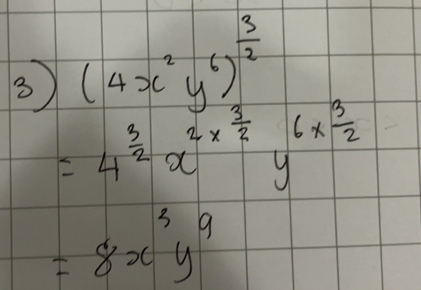 3) (4x² y⁶)^(3/2)
= 4^(3/2) x^(2 × 3/2) y^(6 × 3/2)
= 8x³ y⁹